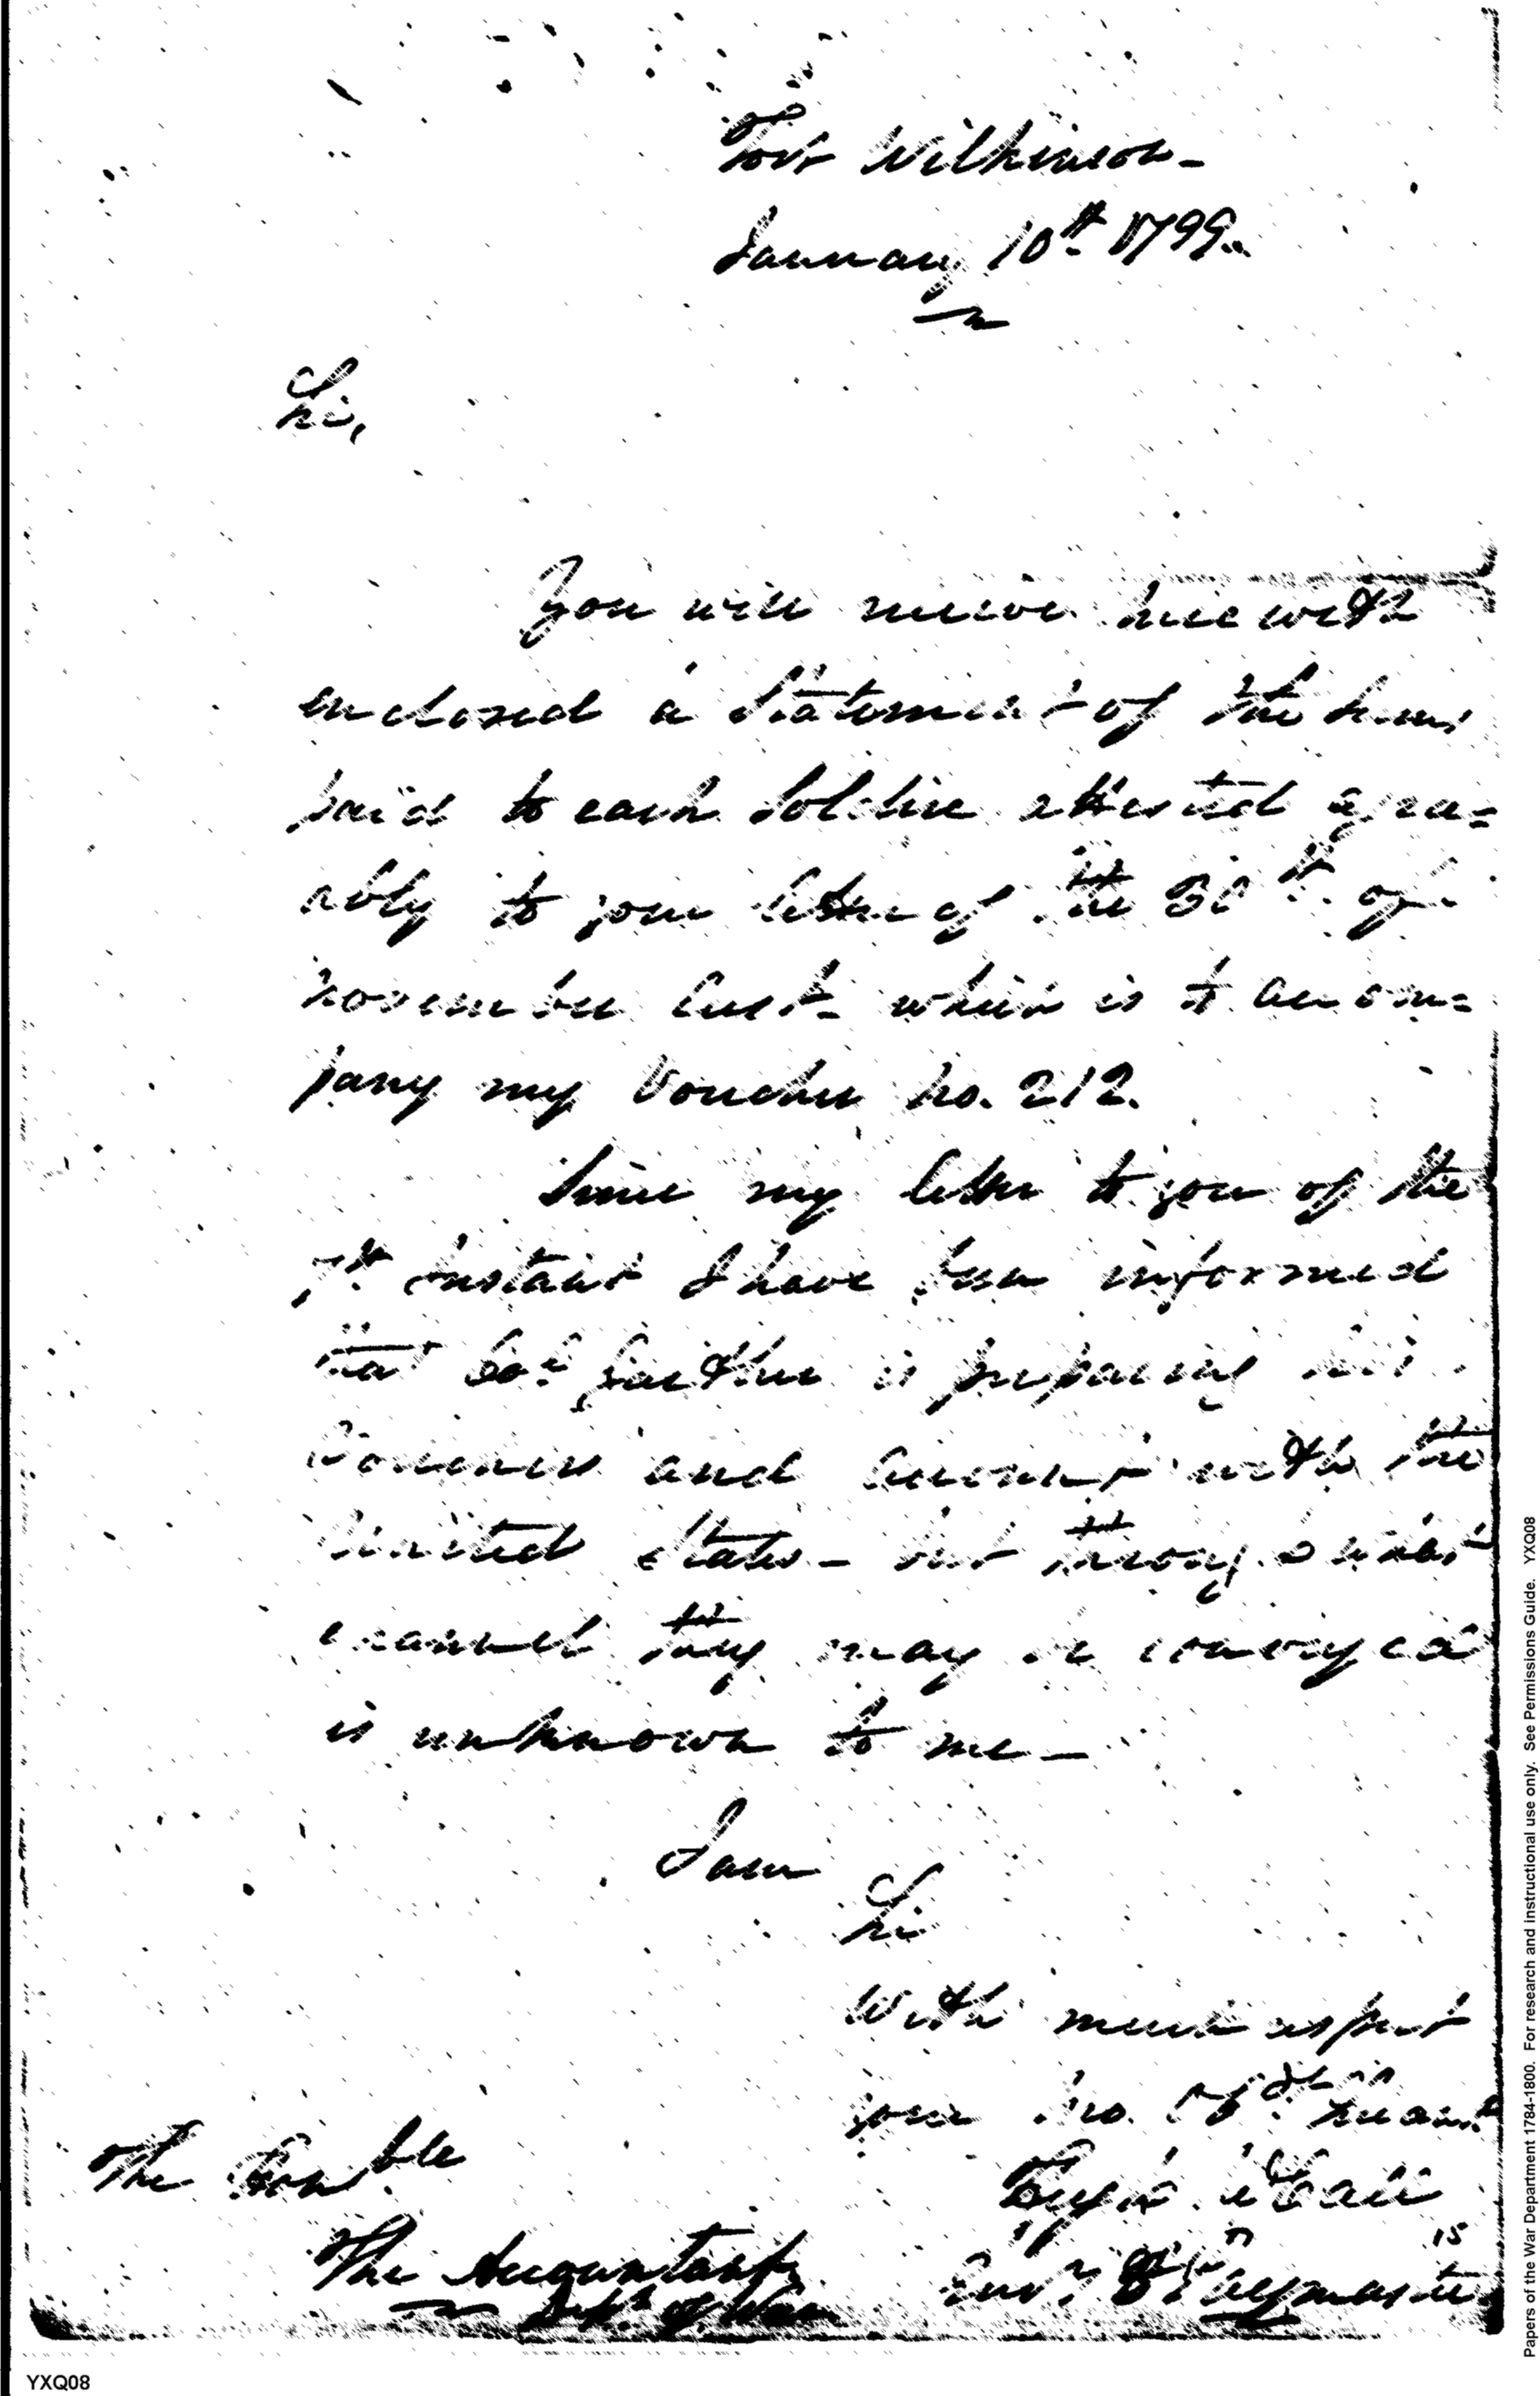 Fort Wilkinson-
January 10th 1799.
Sir,
You will receive herewith
enclosed a Statement of the sums
paid to each Soldier attested agree=
ably to your letter of the 30th of
november last- which is to accom=
pany my Voucher no. 212.
Since my letter to you of the
7th instant I have been informed
that Col Gaither is preparing his
Vouchers and Account with the
United States- but through what
channel they may be conveyed
is unknown to me-
I am
Sir
With much respect
your mo. Obd
The Honble
The Accountant
Dept. of War
Paymaster
Papers of the War Department 1784-1800. For research and instructional use only. See Permissions Guide. YXQ08
YXQ08